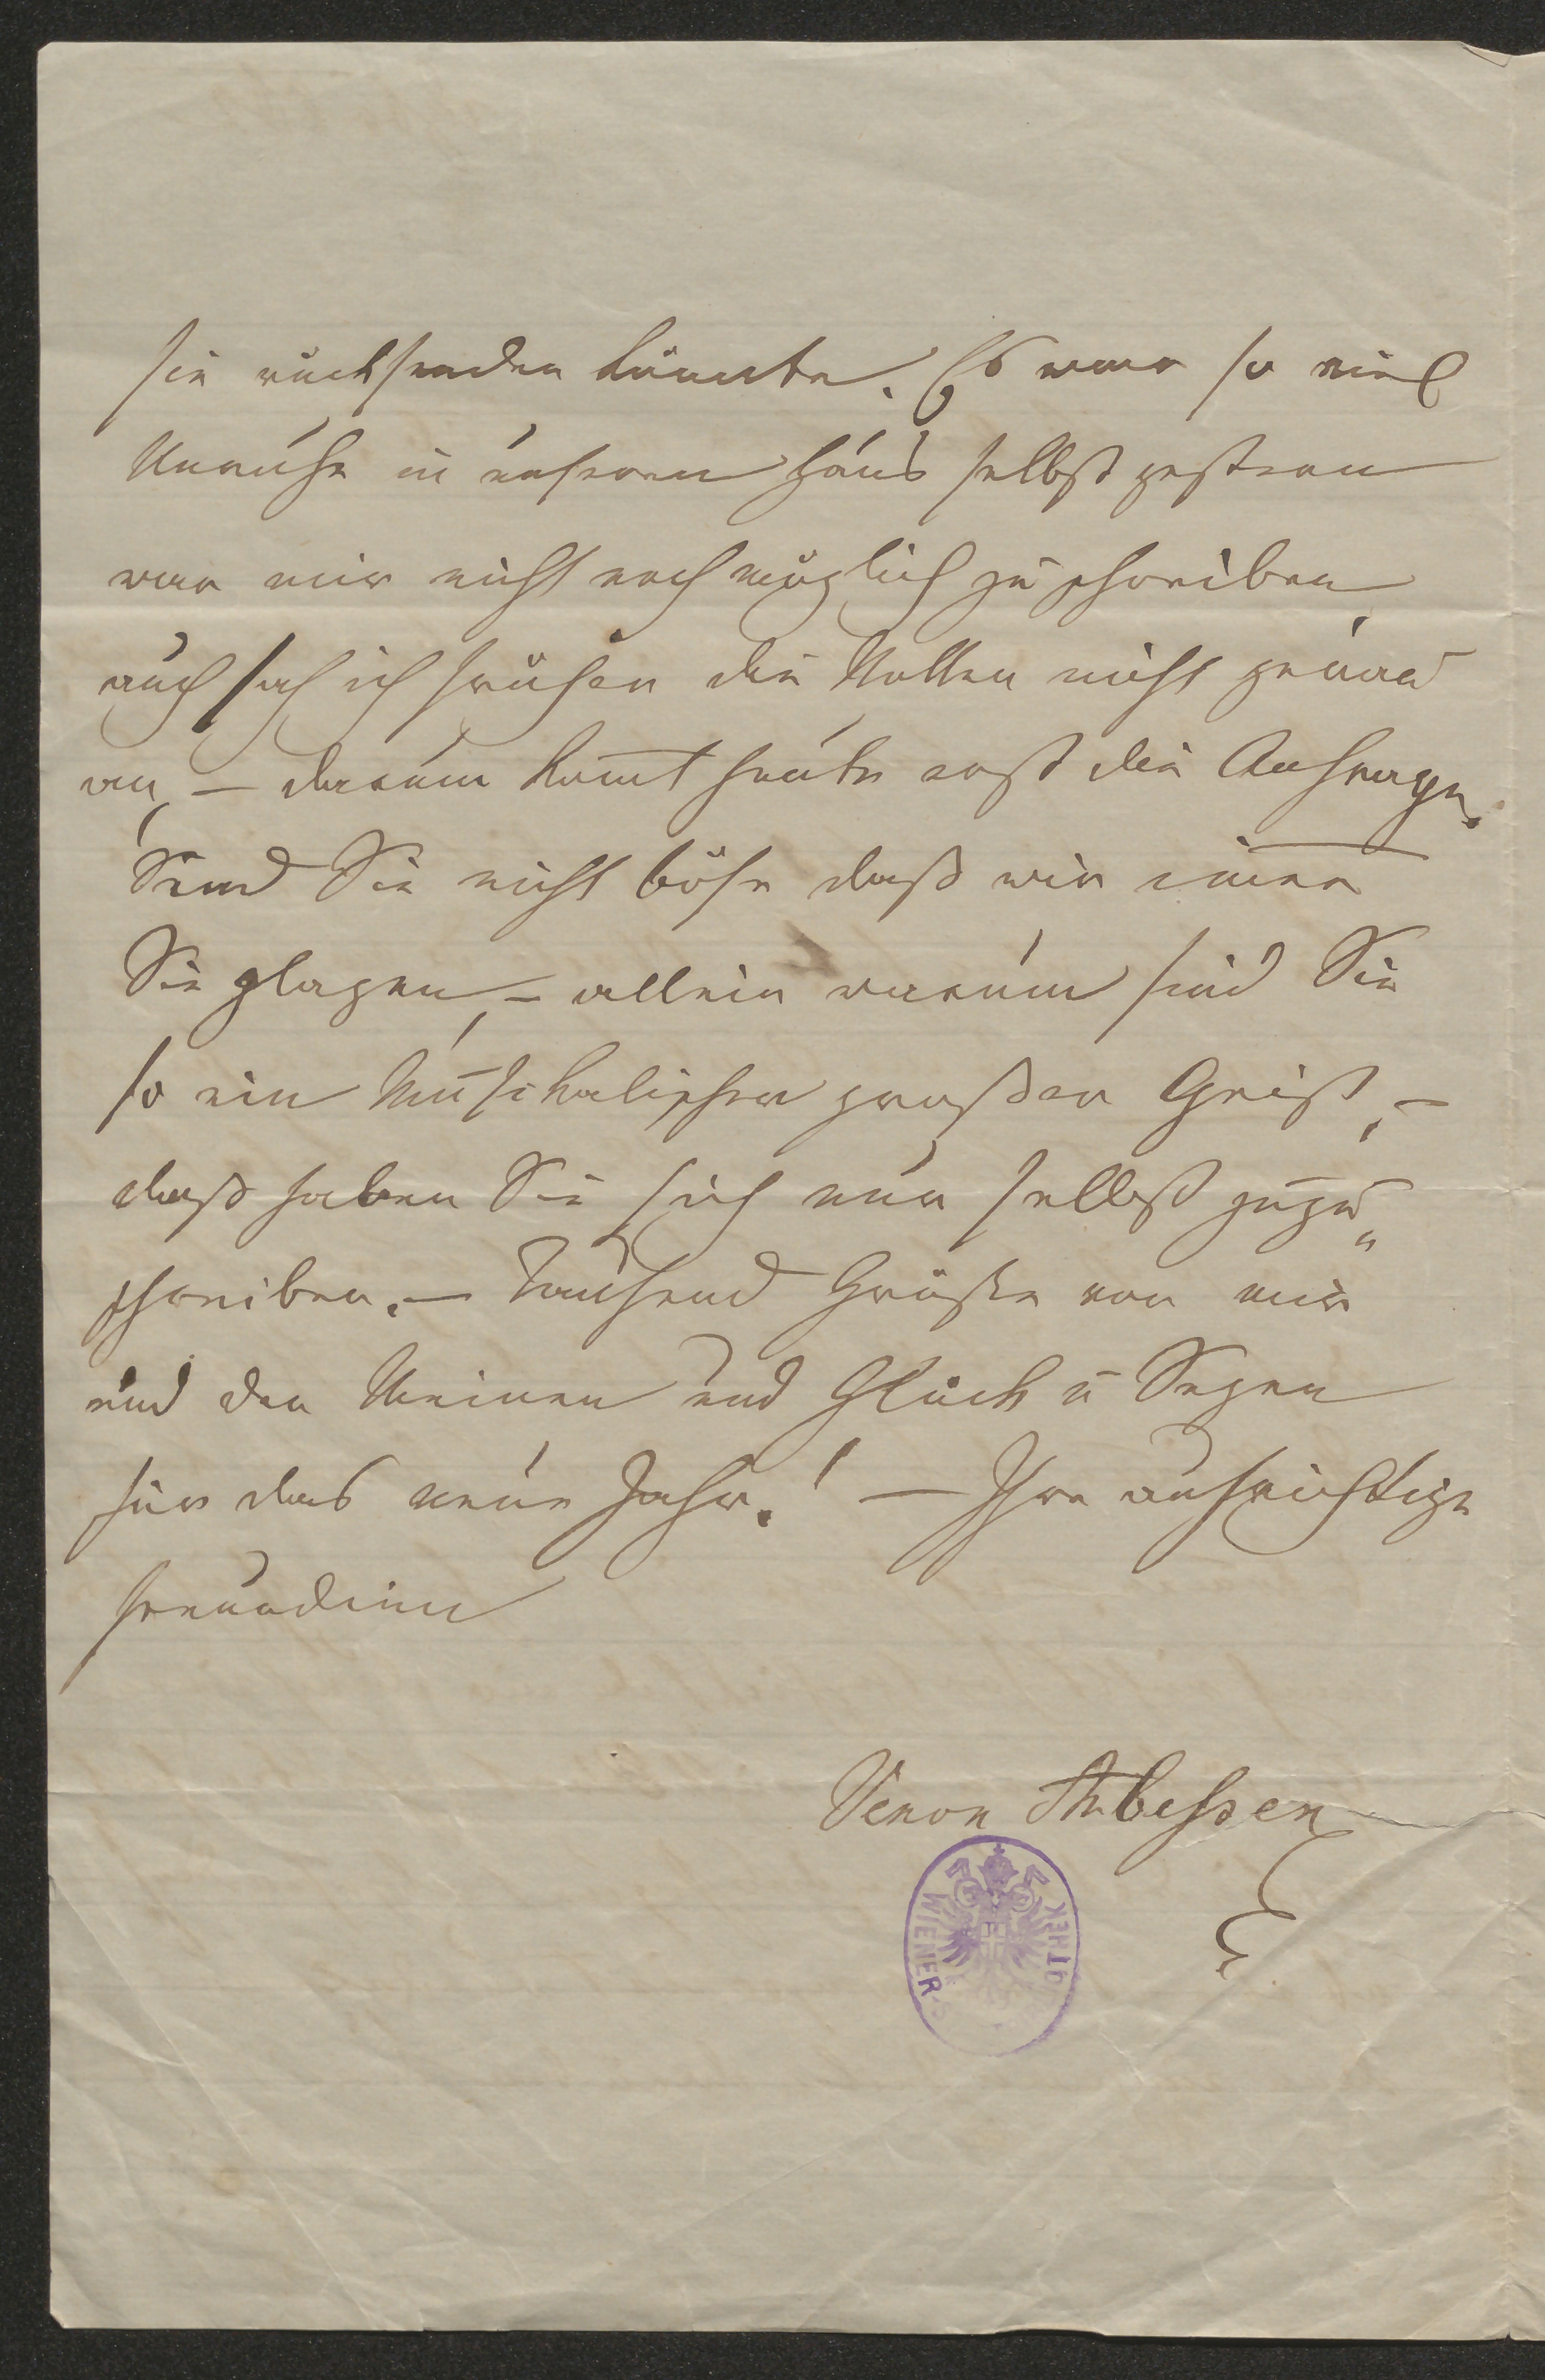 sie rücksenden könnte. Es war so viel
Unruhe in unserem Haus selbst gestern
war mir nicht noch möglich zu schreiben,
auch sah ich früher die Notten nicht genau
an, – darum kom̅t heute erst die Anfrage.
Seind Sie nicht böse daß wir im̅er
Sie plagen, – allein warum sind Sie
so ein Musikalischer großer Geist, –
daß haben Sie sich nur selbst zuzu„
schreiben. – Tausend Grüße von mir
und den Meinen und Glück u Segen
für das neue Jahr.! – Ihre aufrichtige
Freundinn
WIENER